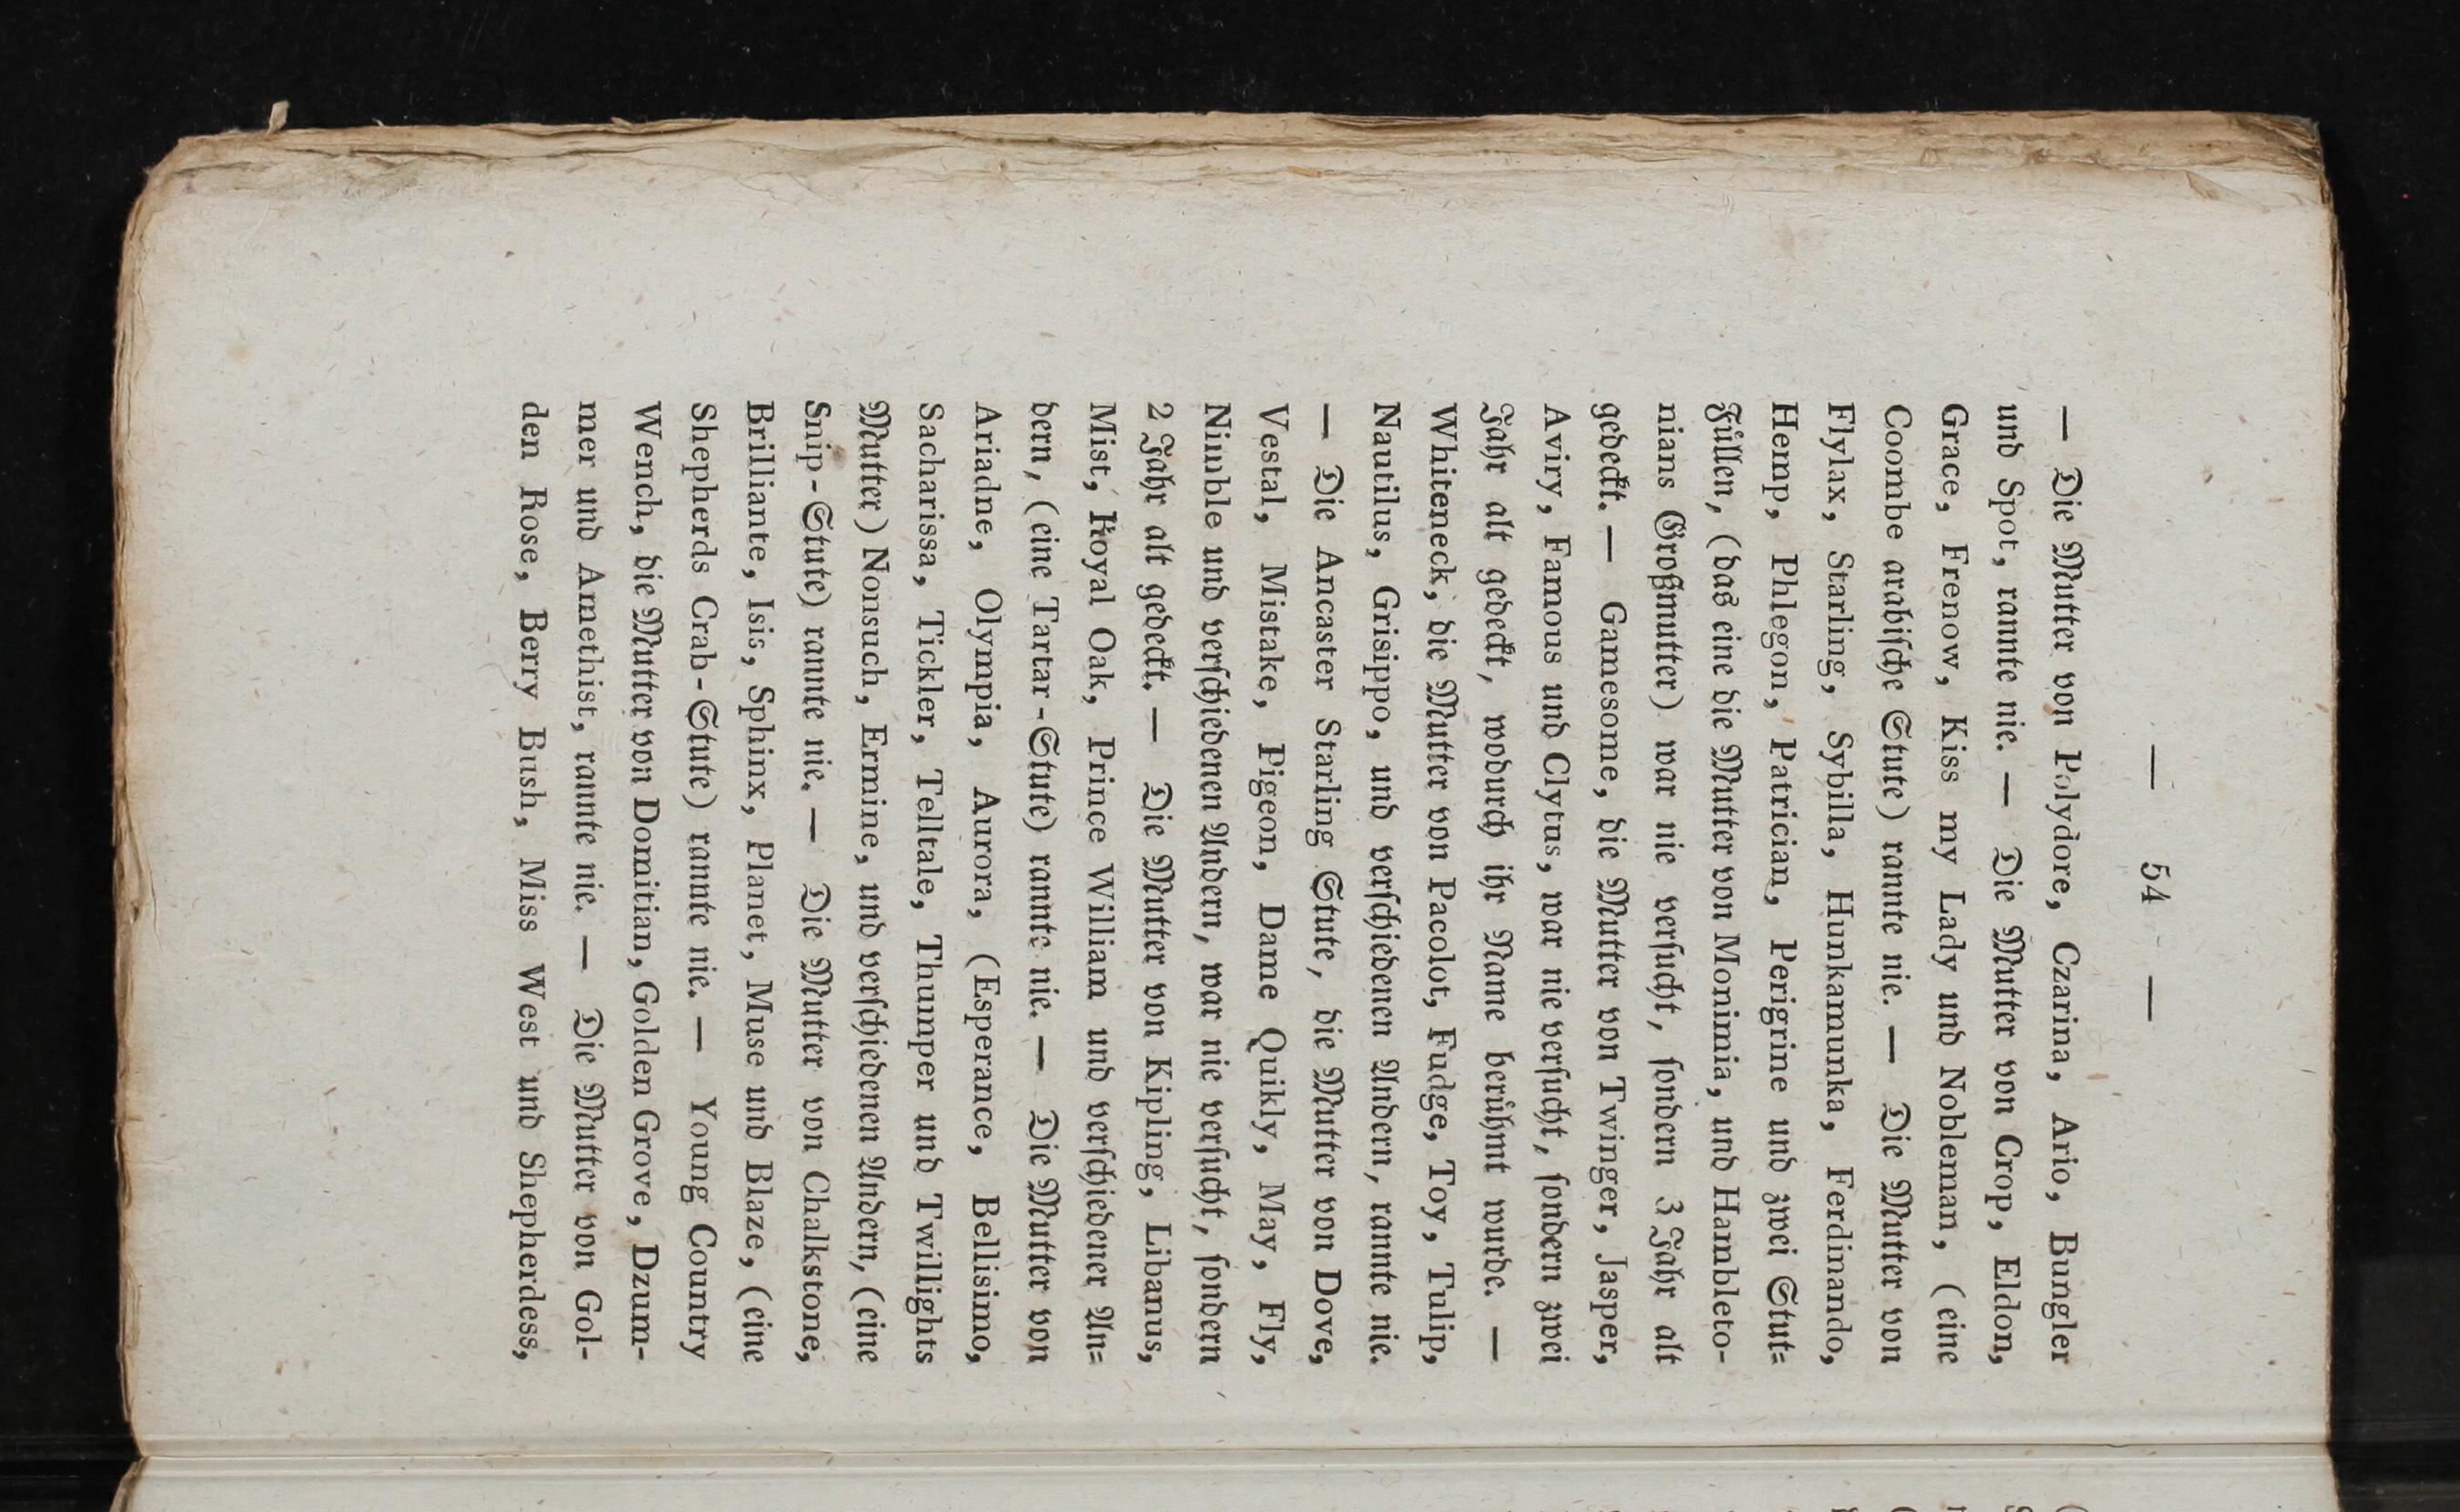 — 54 —
— Die Mutter von Polydore, Czarina, Ario, Bungler
und Spot, rannte nie. — Die Mutter von Crop, Eldon,
Grace, Frenow, Kiss my Lady und Nobleman, (eine
Coombe arabiſche Stute) rannte nie. — Die Mutter von
Flylax, Starling, Sybilla, Hunkamunka, Ferdinando,
Hemp, Phlegon, Patrician, Perigrine und zwei Stut=
Füllen, (das eine die Mutter von Monimia, und Hambleto-
nians Großmutter) war nie verſucht, ſondern 3 Jahr alt
gedeckt. — Gamesome, die Mutter von Twinger, Jasper,
Aviry, Famous und Clytus, war nie verſucht, ſondern zwei
Jahr alt gedeckt, wodurch ihr Name berühmt wurde. —
Whiteneck, die Mutter von Pacolot, Fudge, Toy, Tulip,
Nautilus, Grisippo, und verſchiedenen Andern, rannte nie.
— Die Ancaster Starling Stute, die Mutter von Dove,
Vestal, Mistake, Pigeon, Dame Quikly, May, Fly,
Nimble und verſchiedenen Andern, war nie verſucht, ſondern
2 Jahr alt gedeckt. — Die Mutter von Kipling, Libanus,
Mist, Royal Oak, Prince William und verſchiedener An=
dern, (eine Tartar-Stute) rannte nie. — Die Mutter von
Ariadne, Olympia, Aurora, (Esperance, Bellisimo,
Sacharissa, Tickler, Telltale, Thumper und Twillights
Mutter) Nonsuch, Ermine, und verſchiedenen Andern, (eine
Snip-Stute) rannte nie. — Die Mutter von Chalkstone,
Brilliante, Isis, Sphinx, Planet, Muse und Blaze, (eine
Shepherds Crab-Stute) rannte nie. — Young Country
Wench, die Mutter von Domitian, Golden Grove, Dzum-
mer und Amethist, rannte nie. — Die Mutter von Gol-
den Rose, Berry Bush, Miss West und Shepherdess,